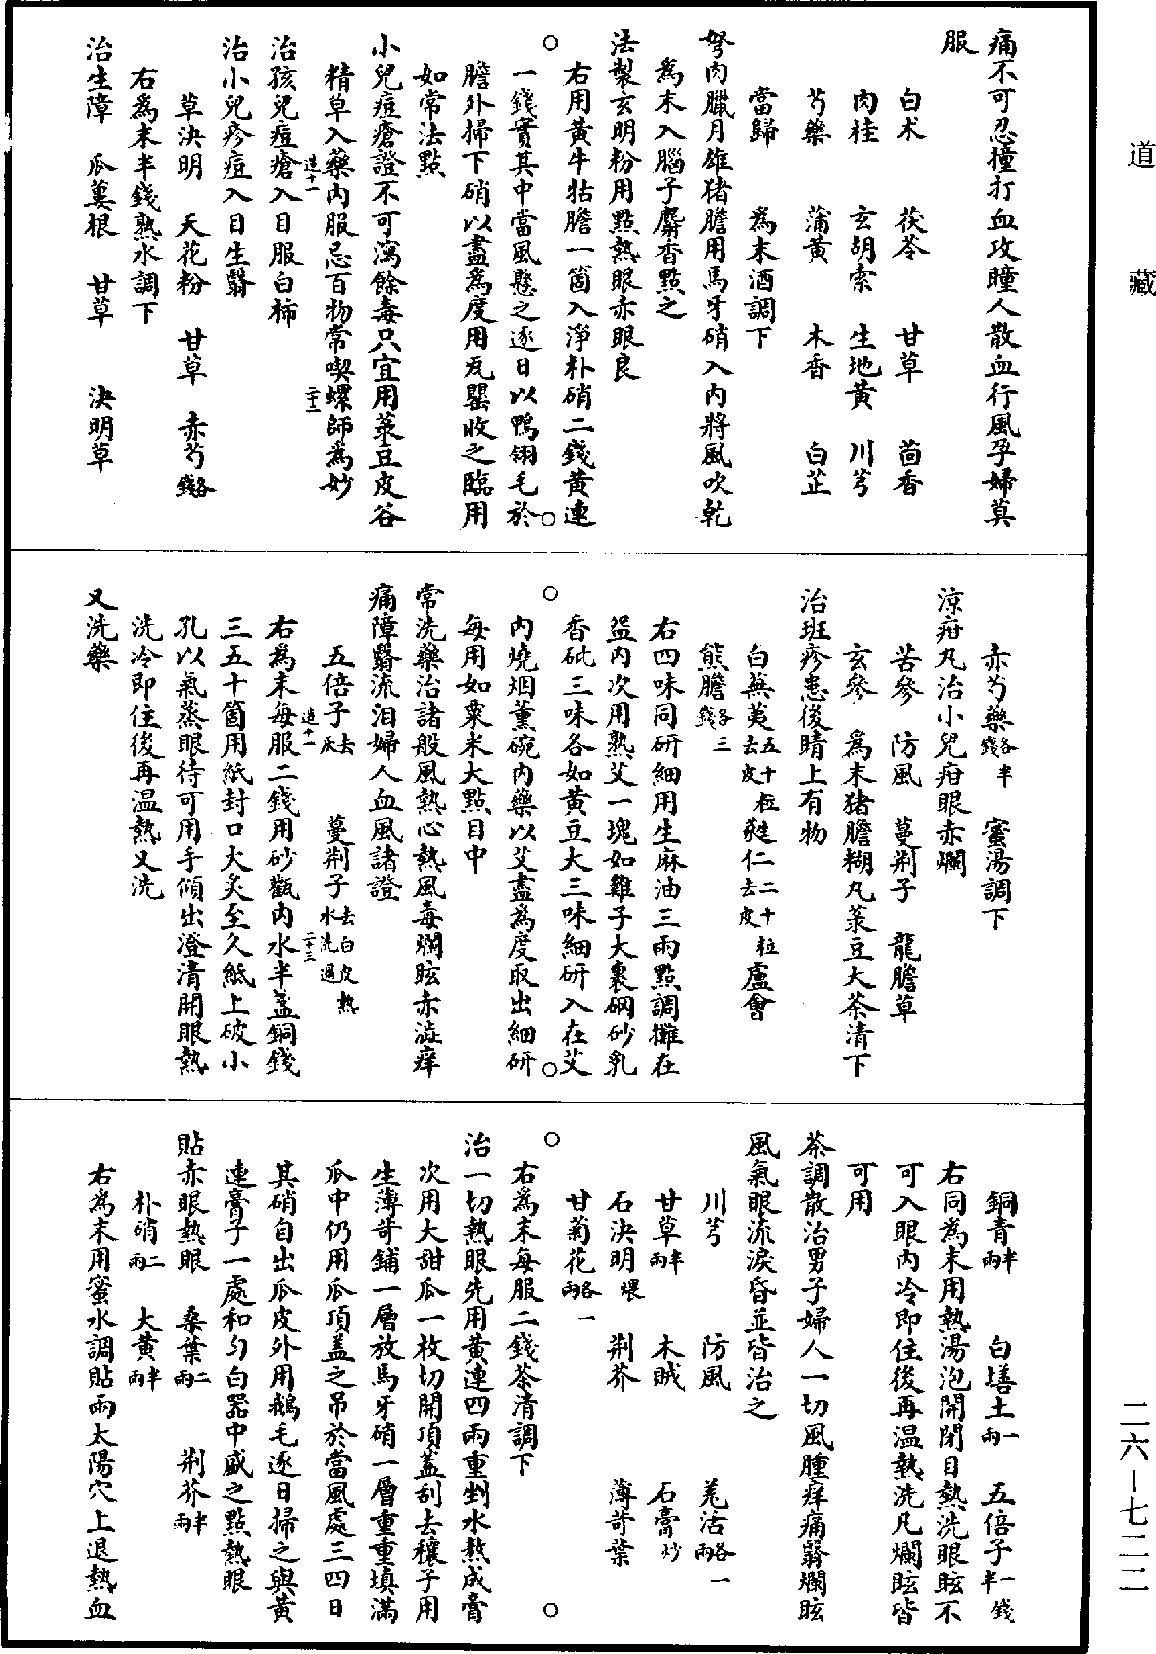 道藏
痛不可忍撞打血攻瞳人散血行風孕婦莫
服
白术　茯苓　甘草　茴香
肉桂　玄胡索　生地黃　川芎
芍藥　蒲黃　木香　白芷
當歸　為末酒調下
努肉臘月雄猪膽用馬牙硝入內將風吹乾
為末入腦子麝香點之
法製玄明粉用點熱眼赤眼良
右用黃牛牯膽一箇入淨朴硝二錢黃連
一錢實其中當風懸之逐日以鴨翎毛於
膽外掃下硝以盡為度用瓦罌收之臨用
如常法點
小兒痘瘡證不可瀉餘毒只宜用菉豆皮谷
精草入藥內服忌百物常喫螺師為妙
治孩兒痘瘡入目服白柿
治小兒疹痘入目生翳
草決明　天花粉　甘草　赤芍各錢
右為末半錢熟水調下
治生障　瓜蔞根　甘草　決明草
赤芍藥各半錢　蜜湯調下
涼疳丸治小兒疳眼赤爛
苦參　防風　蔓荆子　龍膽草
玄參　為末猪膽糊丸菉豆大茶清下
治班疹患後睛上有物
白蕪荑五十粒去皮　蕤仁二十粒去皮　盧會
熊膽各三錢
右四味同研細用生麻油三兩點調攤在
盌內次用熟艾一塊如雞子大裹硇砂乳
香砒三味各如黃豆大三味細研入在艾
內燒烟薰碗內藥以艾盡為度取出細研
每用如粟米大點目中
常洗藥治諸般風熱心熱風毒爛眩赤澁痒
痛障翳流泪婦人血風諸證
五倍子去瓤　蔓荆子去白皮熱水洗過
右為末每服二錢用砂甌內水半盞銅錢
三五十箇用紙封口大炙至久紙上破小
孔以氣蒸眼待可用手傾出澄清開眼熱
洗冷即住後再温熱又洗
又洗藥
銅青半兩　白墡土一兩　五倍子一錢半
右同為末用熱湯泡開閉目熱洗眼眩不
可入眼內冷即住後再温熱洗凡爛眩皆
可用
茶調散治男子婦人一切風腫痒痛翳爛眩
風氣眼流淚昏並皆治之
川芎　防風　羌活各一兩
甘草半兩　木賊　石膏炒
石決明煨　荆芥　薄荷葉
甘菊花各一兩
右為末每服二錢茶清調下
治一切熱眼先用黃連四兩重剉水熬成膏
次用大甜瓜一枚切開頂蓋刮去穰子用
生薄荷鋪一層放馬牙硝一層重重填滿
瓜中仍用瓜頂蓋之吊於當風處三四日
其硝自出瓜皮外用鵝毛逐日掃之與黃
連膏子一處和勻白器中盛之點熱眼
貼赤眼熱眼　桑葉二兩　荆芥半兩
朴硝二兩　大黃半兩
右為末用蜜水調貼兩太陽穴上退熱血
二六—七二二